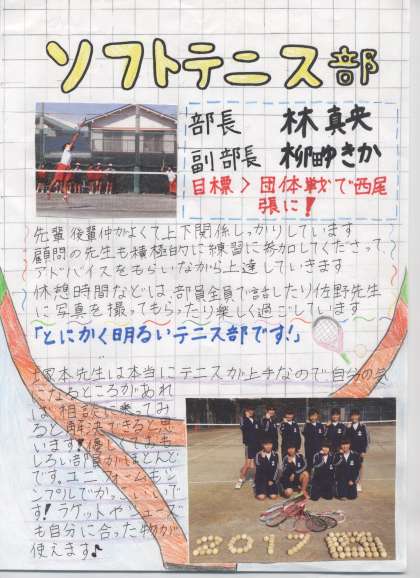 ソフトテニス部
部長 林真央
副部長 柳田ゆさか
目標>団体戦で西尾
張に!
先輩後輩仲がよくて上下関係しっかりしています
顧問の先生も積極的に練習に参加してくださって
アドバイスをもらいながら上達していきます
休憩時間などは、部員全員で話したり佐野先生
に写真を撮ってもらったり楽しく過ごしています
「とにかく明るいテニス部です!」
塚本先生は本当にテニスが上手なので自分の気
になるところがあれ
ば相談に乗ってみ
ると解決できると思
います!優しくておも
しろい部員がほとんど
です。ユニフォームもシ
ンプルでかっこいいで
す!ラケットやシューズ
も自分に合った物が
使えます♪
2017